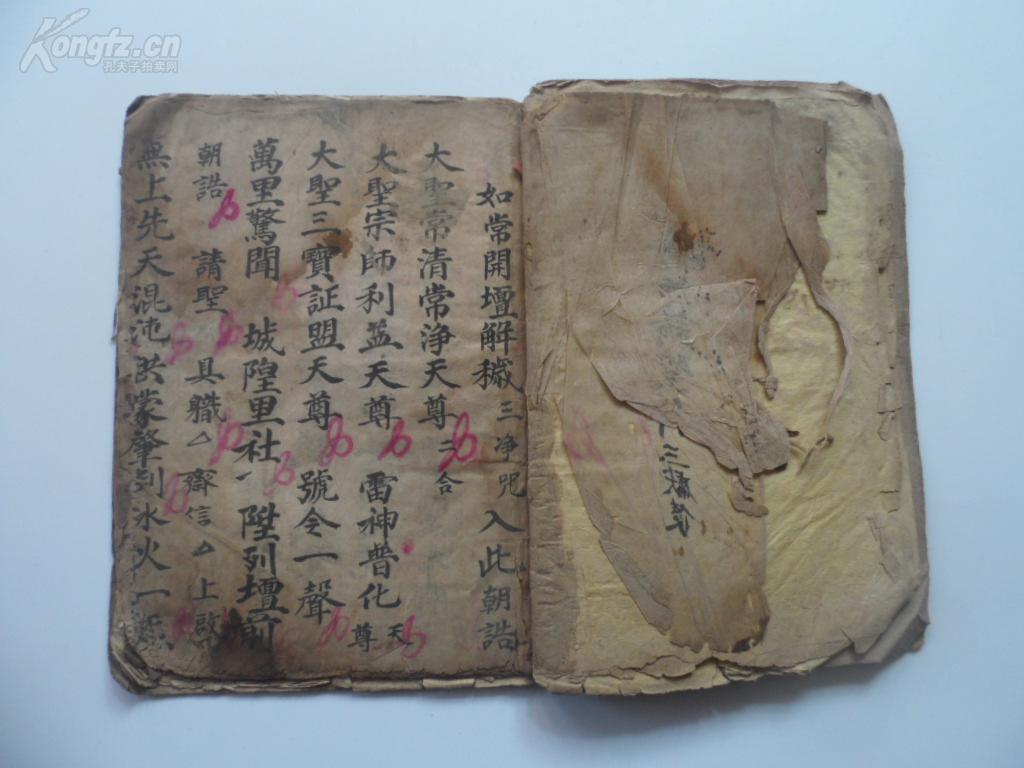 Kongfz.cn
孔夫子拍卖网
如常開壇解穢 三净咒 入此朝誥
大聖常清常浄天尊 二合
大聖宗師利益天尊 雷神普化天尊
大聖三寶証盟天尊 號令一聲
萬里驚聞 城隍里社 陞列壇前
朝誥 請聖 具職△ 齋信△ 上啟
無上先天混沌洪蒙肇列氷火一
三獻